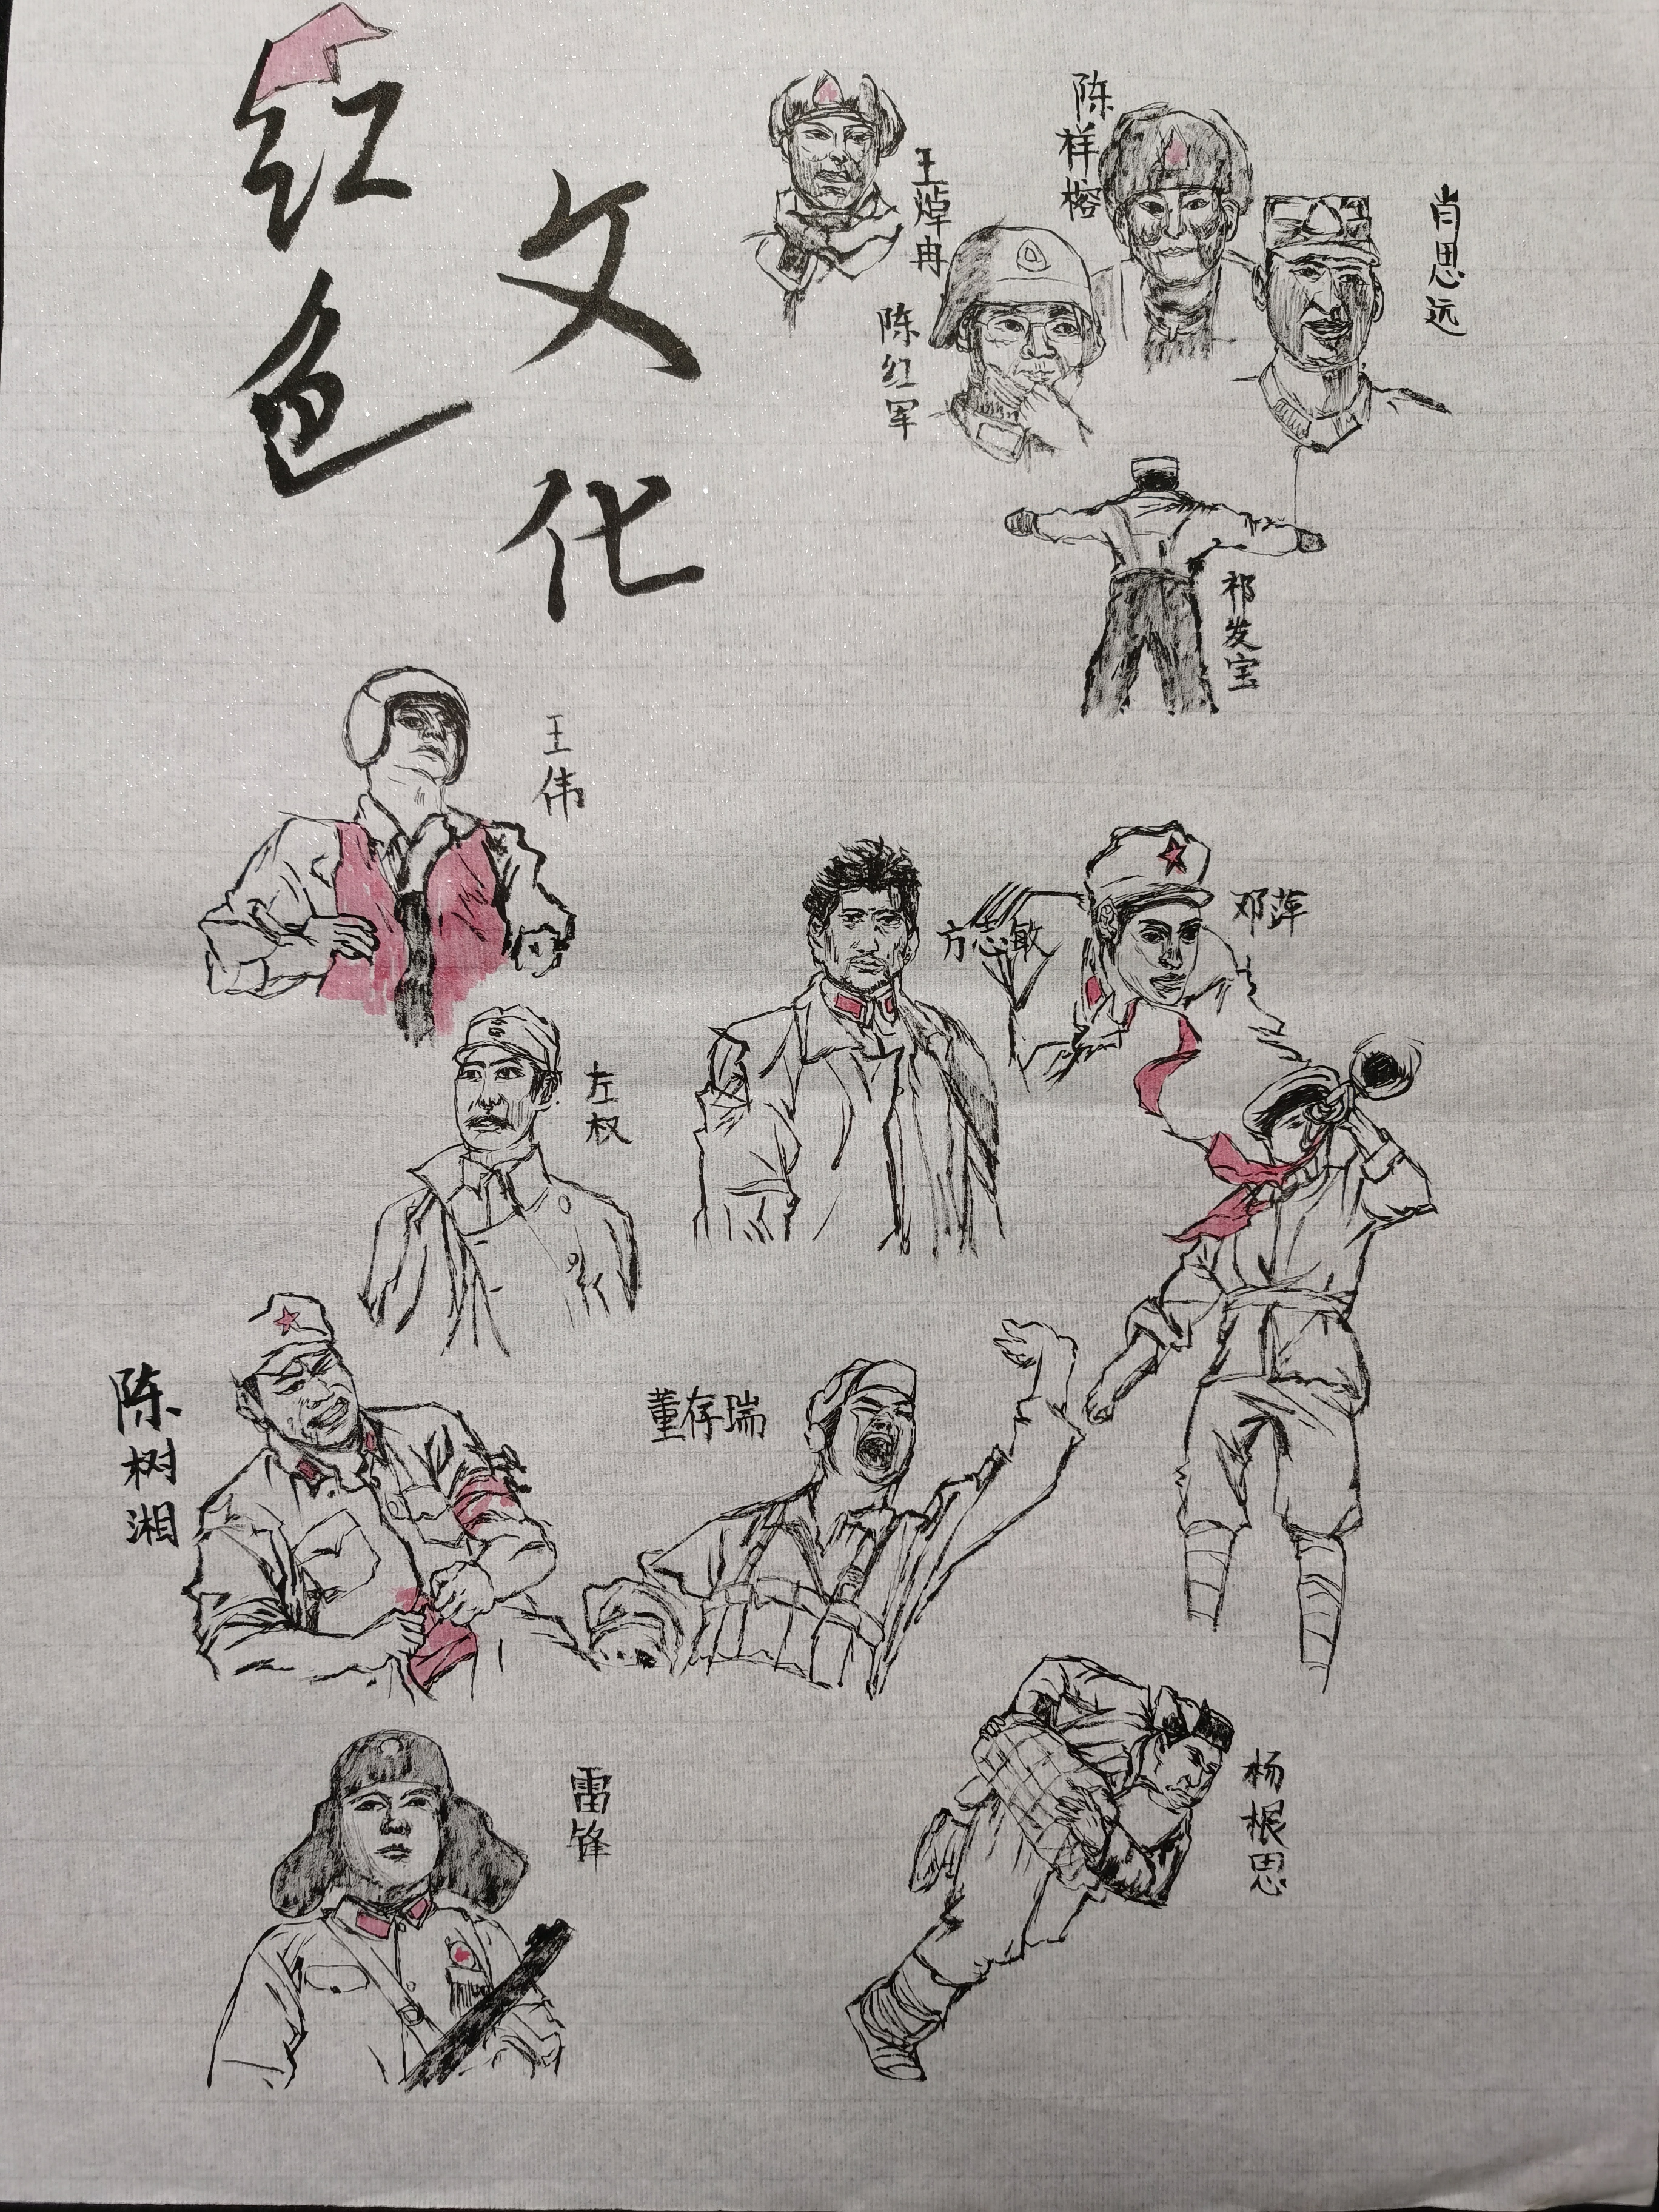 红色
文化
王焯冉
陈祥榕
肖思远
陈红军
祁发宝
王伟
方志敏
邓萍
左权
陈树湘
董存瑞
雷锋
杨根思